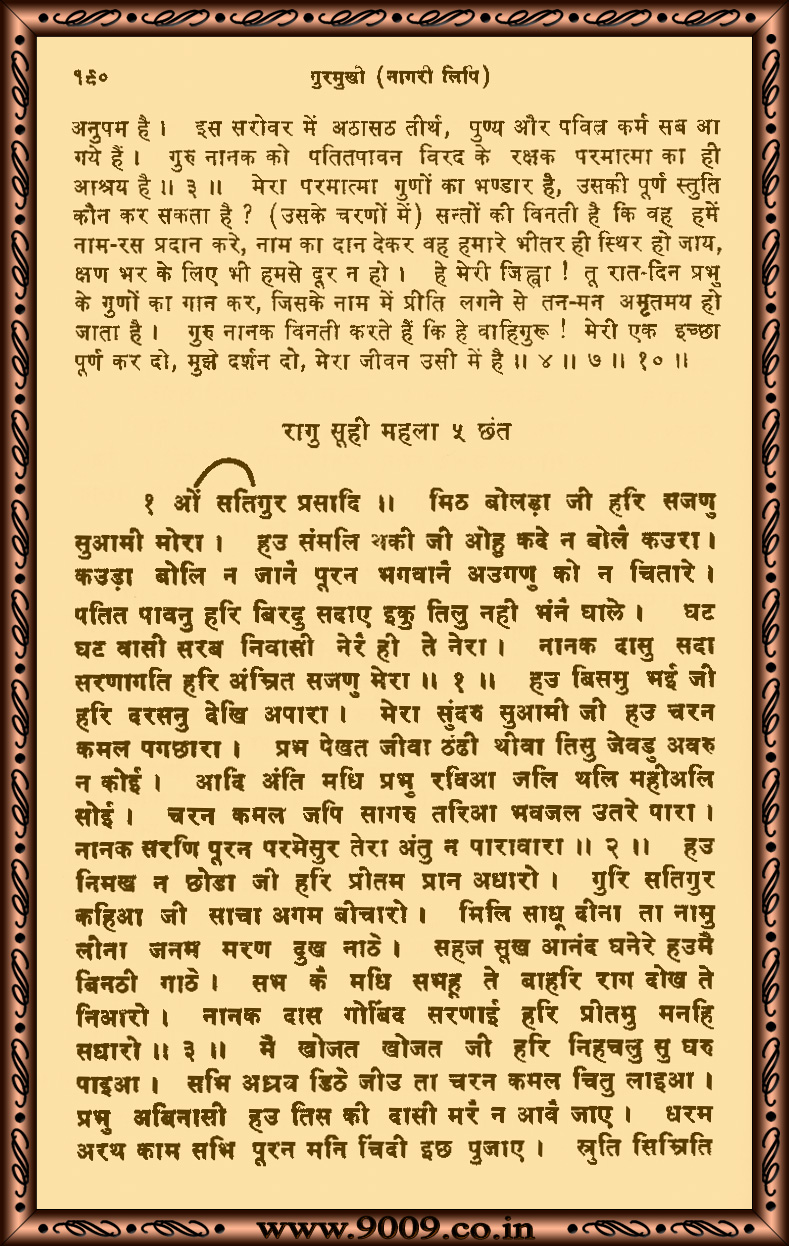 १९० गुरमुखी (नागरी लिपि)
अनुपम है । इस सरोवर में अठासठ तीर्थ, पुण्य और पवित्र कर्म सब आ
गये हैं । गुरु नानक को पतितपावन विरद के रक्षक परमात्मा का ही
आश्रय है ॥ ३ ॥ मेरा परमात्मा गुणों का भण्डार है, उसकी पूर्ण स्तुति
कौन कर सकता है ? (उसके चरणों में) सन्तों की विनती है कि वह हमें
नाम-रस प्रदान करे, नाम का दान देकर वह हमारे भीतर ही स्थिर हो जाय,
क्षण भर के लिए भी हमसे दूर न हो । हे मेरी जिह्वा ! तू रात-दिन प्रभु
के गुणों का गान कर, जिसके नाम में प्रीति लगने से तन-मन अमृतमय हो
जाता है । गुरु नानक विनती करते हैं कि हे वाहिगुरू ! मेरी एक इच्छा
पूर्ण कर दो, मुझे दर्शन दो, मेरा जीवन उसी में है ॥ ४ ॥ ७ ॥ १० ॥
रागु सूही महला ५ छंत
१ ओं सतिगुर प्रसादि ॥ मिठ बोलड़ा जी हरि सजणु
सुआमी मोरा । हउ संमलि थकी जी ओहु कदे न बोलै कउरा ।
कउड़ा बोलि न जानै पूरन भगवानै अउगणु को न चितारे ।
पतित पावनु हरि बिरदु सदाए इकु तिलु नही भंनै घाले । घट
घट वासी सरब निवासी नेरै ही ते नेरा । नानक दासु सदा
सरणागति हरि अंम्रित सजणु मेरा ॥ १ ॥ हउ बिसमु भई जी
हरि दरसनु देखि अपारा । मेरा सुंदरु सुआमी जी हउ चरन
कमल पगछारा । प्रभ पेखत जीवा ठंढी थीवा तिसु जेवडु अवरु
न कोई । आदि अंति मधि प्रभु रविआ जलि थलि महीअलि
सोई । चरन कमल जपि सागरु तरिआ भवजल उतरे पारा ।
नानक सरणि पूरन परमेसुर तेरा अंतु न पारावारा ॥ २ ॥ हउ
निमख न छोडा जी हरि प्रीतम प्रान अधारो । गुरि सतिगुर
कहिआ जी साचा अगम बीचारो । मिलि साधू दीना ता नामु
लीना जनम मरण दुख नाठे । सहज सूख आनंद घनेरे हउमै
बिनठी गाठे । सभ कै मधि सभहू ते बाहरि राग दोख ते
निआरो । नानक दास गोबिंद सरणाई हरि प्रीतमु मनहि
सधारो ॥ ३ ॥ मै खोजत खोजत जी हरि निहचलु सु घरु
पाइआ । सभि अध्रुव डिठे जीउ ता चरन कमल चितु लाइआ ।
प्रभु अबिनासी हउ तिस की दासी मरै न आवै जाए । धरम
अरथ काम सभि पूरन मनि चिंदी इछ पुजाए । स्रुति सिम्रिति
www.9009.co.in